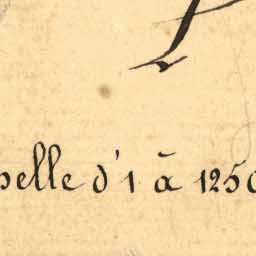 pelle d'1 à 1250